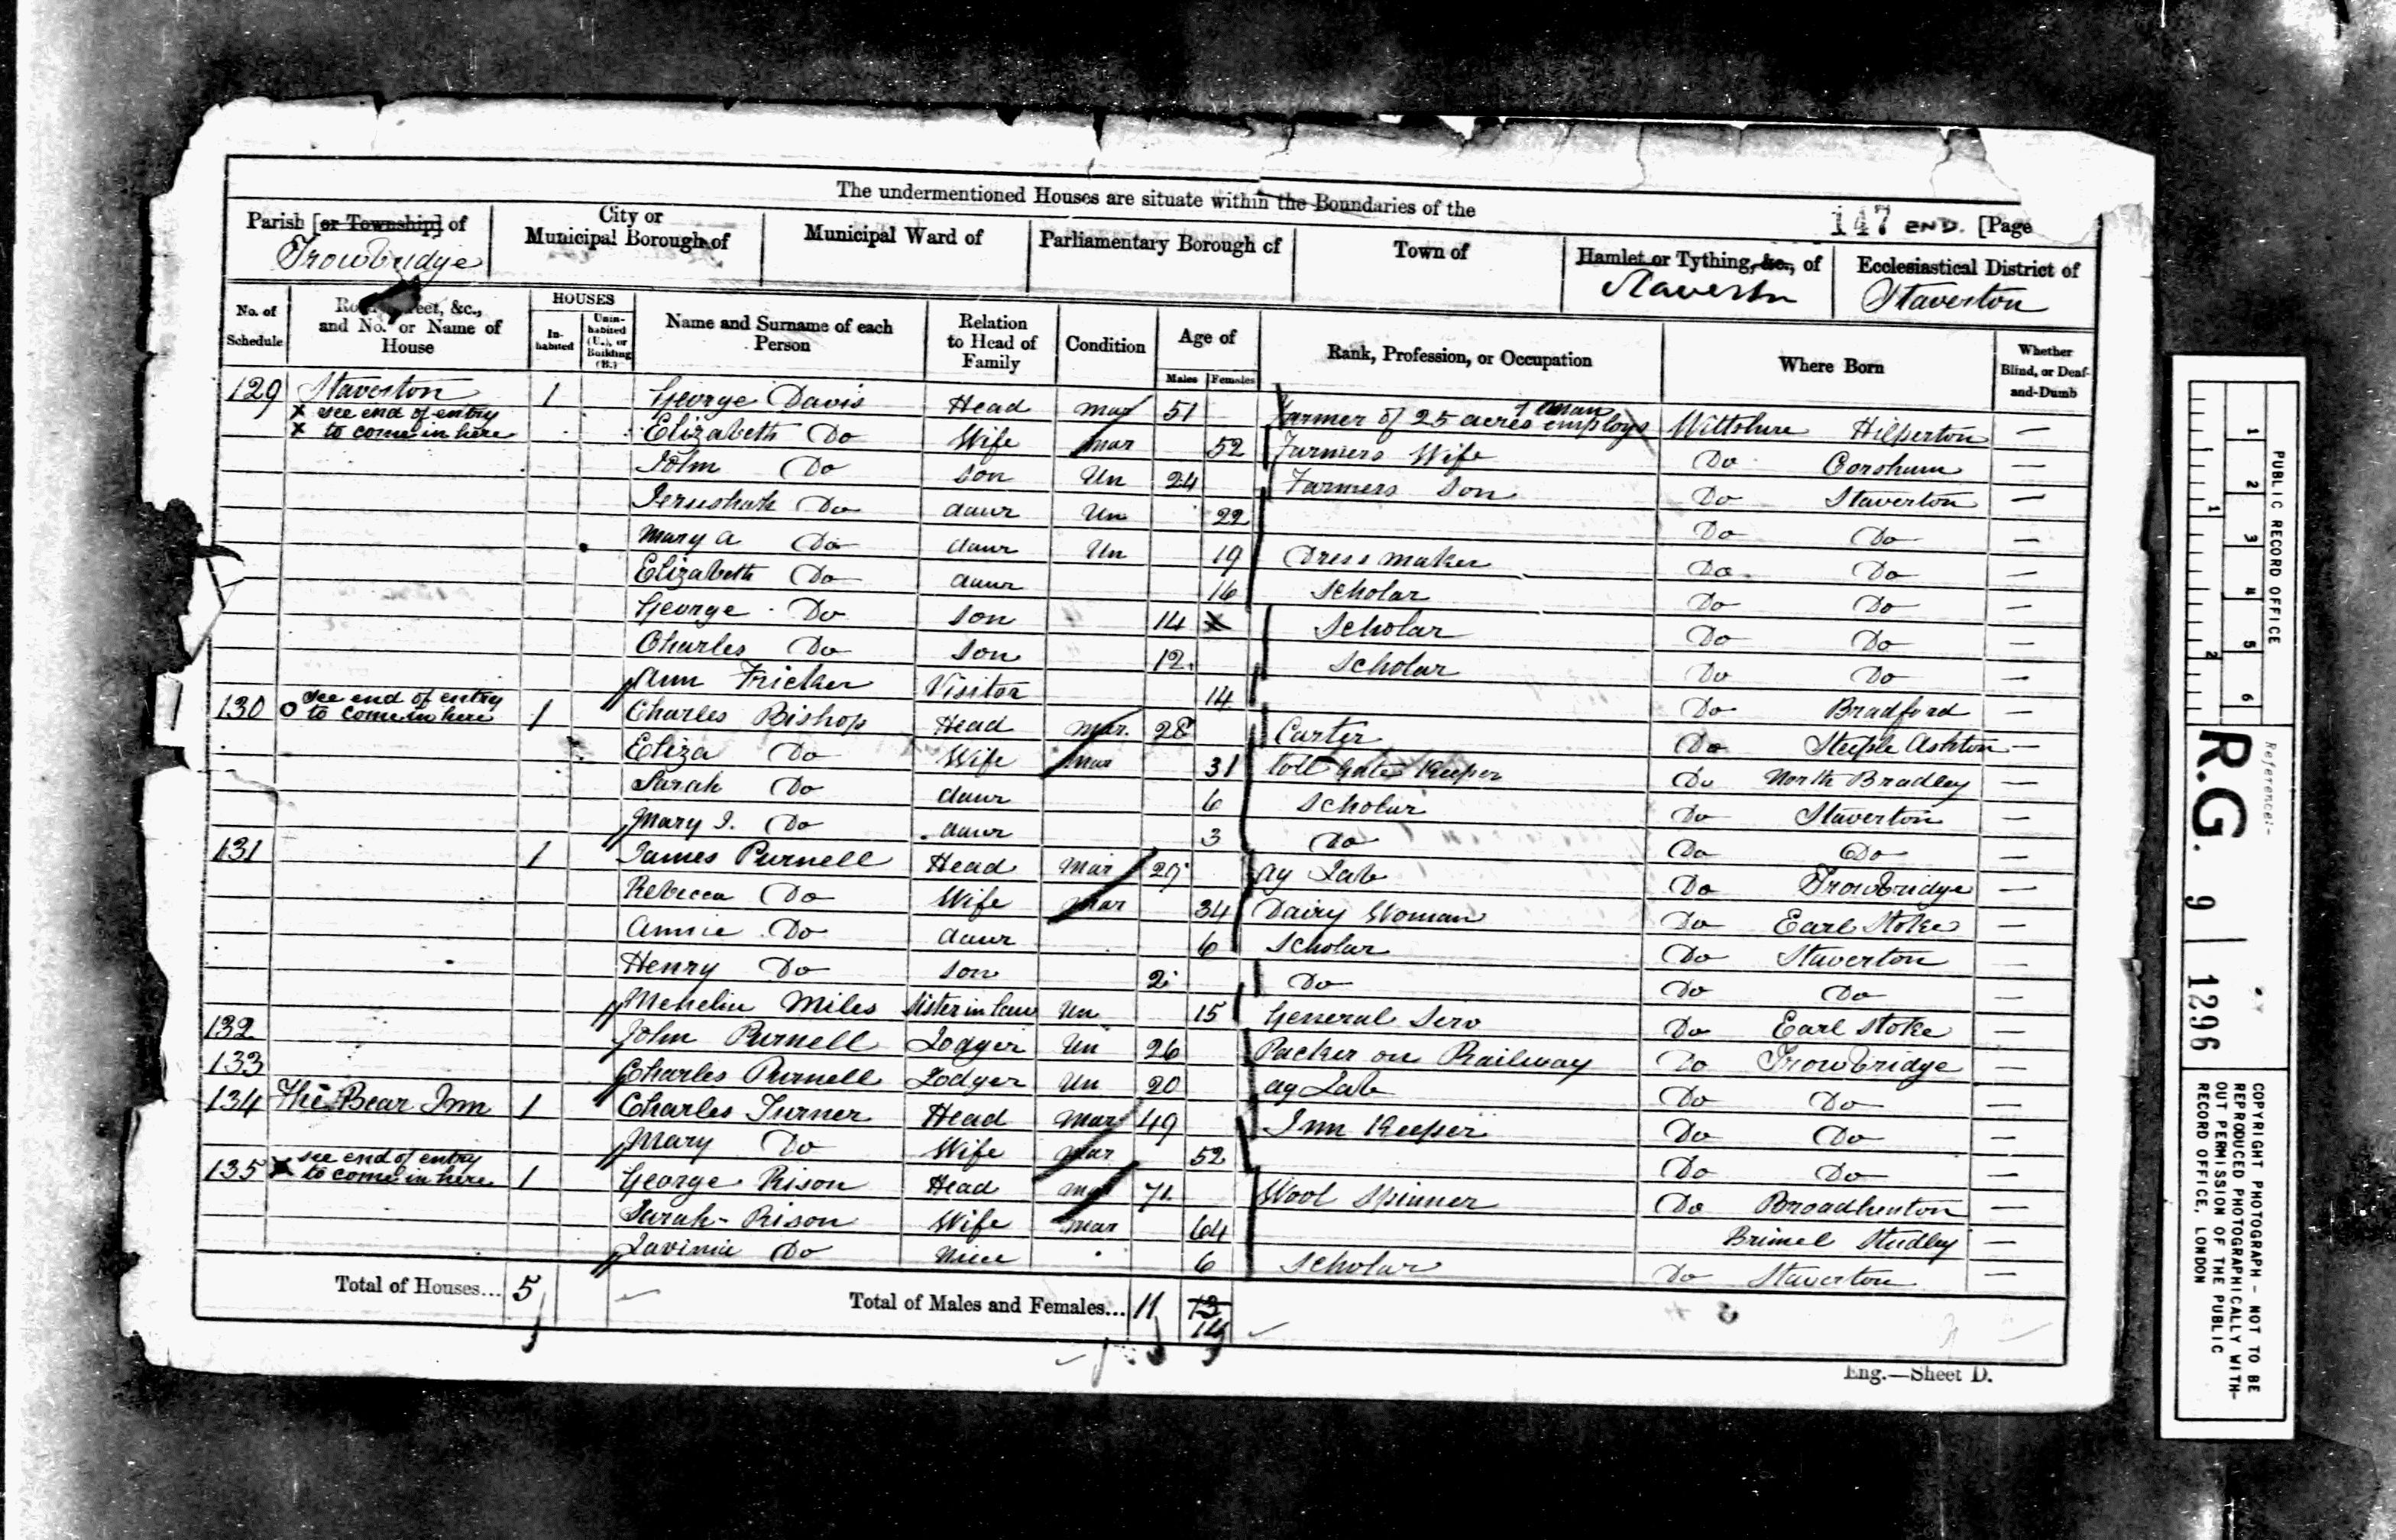 The undermentioned Houses are situate within the Boundaries of the
147 END. [Page
Parish [or Township] of Trowbridge
City or Municipal Borough of
Municipal Ward of
Parliamentary Borough of
Town of
Hamlet or Tything, &c., of Staverton
Ecclesiastical District of Staverton
No. of Schedule
and No. or Name of House
HOUSES
In-habited
Unin-habited (U.), or Building (B.)
Name and Surname of each Person
Relation to Head of Family
Condition
Age of
Males Females
Rank, Profession, or Occupation
Where Born
Whether Blind, or Deaf-and-Dumb
129 Staverton 1 George Davis Head Mar 51 Farmer of 25 acres employs 1 man Wiltshire Hilperton —
X see end of entry
X to come in here Elizabeth Do Wife Mar 52 Farmers Wife Do Corsham —
John Do Son Un 24 Farmers Son Do Staverton —
Jerushah Do daur Un 22 Do Do —
Mary A Do daur Un 19 Dress maker Do Do —
Elizabeth Do daur 16 Scholar Do Do —
George Do Son 14 X Scholar Do Do —
Charles Do Son 12 Scholar Do Do —
Ann Fricker Visitor 14 Do Bradford —
130 O see end of entry
to come in here 1 Charles Bishop Head Mar. 28 Carter Do Steeple Ashton —
Eliza Do Wife Mar 31 Toll Gate Keeper Do North Bradley —
Sarah Do daur 6 Scholar Do Staverton —
Mary J. Do daur 3 Do Do Do —
131 1 James Purnell Head Mar 29 Ag Lab Do Trowbridge —
Rebecca Do Wife Mar 34 Dairy Woman Do Earl Stoke —
Annie Do daur 6 Scholar Do Staverton —
Henry Do Son 2 Do Do Do —
Miles Sister in law Un 15 General Serv Do Earl Stoke —
132 John Purnell Lodger Un 26 Packer on Railway Do Trowbridge —
133 Charles Purnell Lodger Un 20 Ag Lab Do Do —
134 The Bear Inn 1 Charles Turner Head Mar 49 Inn Keeper Do Do —
Mary Do Wife Mar 52 Do Do —
135 X see end of entry
to come in here 1 George Rison Head Mar 71 Wool Spinner Do —
Sarah Rison Wife Mar 64 Studley —
Lavinia Do Niece 6 Scholar Do Staverton —
Total of Houses... 5
Total of Males and Females... 11 13 14
Eng.—Sheet D.
PUBLIC RECORD OFFICE
1 2 3 4 5 6
1 2
Reference:-
R.G. 9 / 1296
COPYRIGHT PHOTOGRAPH - NOT TO BE
REPRODUCED PHOTOGRAPHICALLY WITH-
OUT PERMISSION OF THE PUBLIC
RECORD OFFICE, LONDON